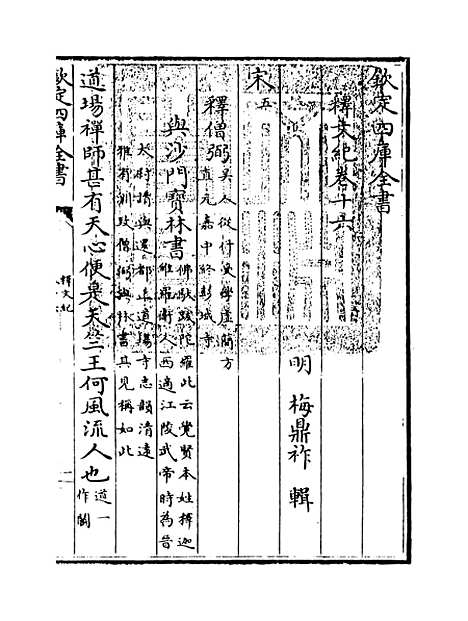 欽定四庫全書
釋文紀卷十六
明 梅鼎祚 輯
宋五
釋僧弼 吳人從什受學虛簡方
直元嘉中終彭城寺
與沙門寶林書 佛馱跋陀羅此云覺賢本姓釋迦
維羅衛人西適江陵武帝時為晉
太尉請與還都止道場寺志韻清遠
雅有訓致僧弼與林書其見稱如此
道場禪師甚有天心便是天竺王何風流人也 道一
作鬬
欽定四庫全書
釋文紀